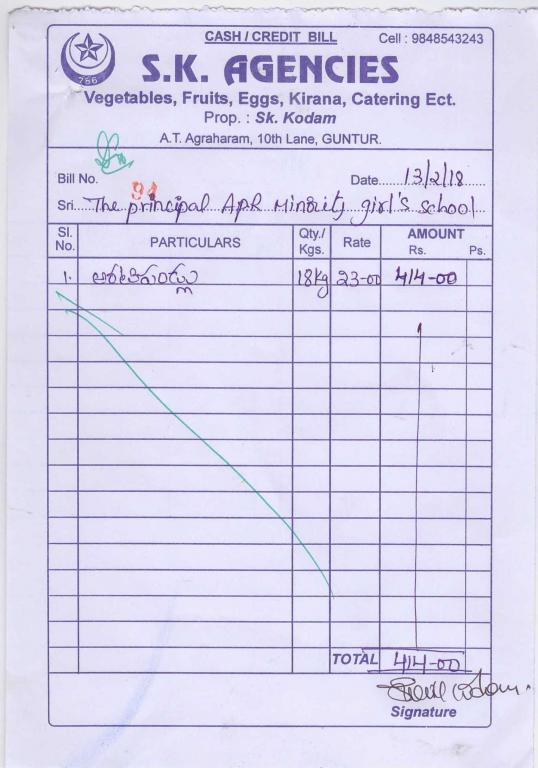 CASH / CREDIT BILL
Cell : 9848543243
786
S.K. AGENCIES
Vegetables, Fruits, Eggs, Kirana, Catering Ect.
Prop. : Sk. Kodam
A.T. Agraharam, 10th Lane, GUNTUR.
Bill No. 91 Date 13/2/18
Sri. The principal APR Minority girl's school
Sl. No. PARTICULARS Qty./ Kgs. Rate AMOUNT Rs. Ps.
1. అరటిపండ్లు 18kg 23-00 414-00
TOTAL 414-00
Signature